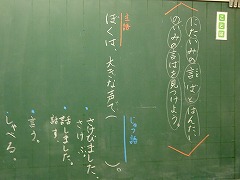 ことば
にたいみの言ばとはんたい
のいみの言ばを見つけよう。
主語
ぼくは、大きな声で（　　　）。
じゅつ語
・さけびました。
さけぶ。
・話しました。
話す。
・言う。
・しゃべる。